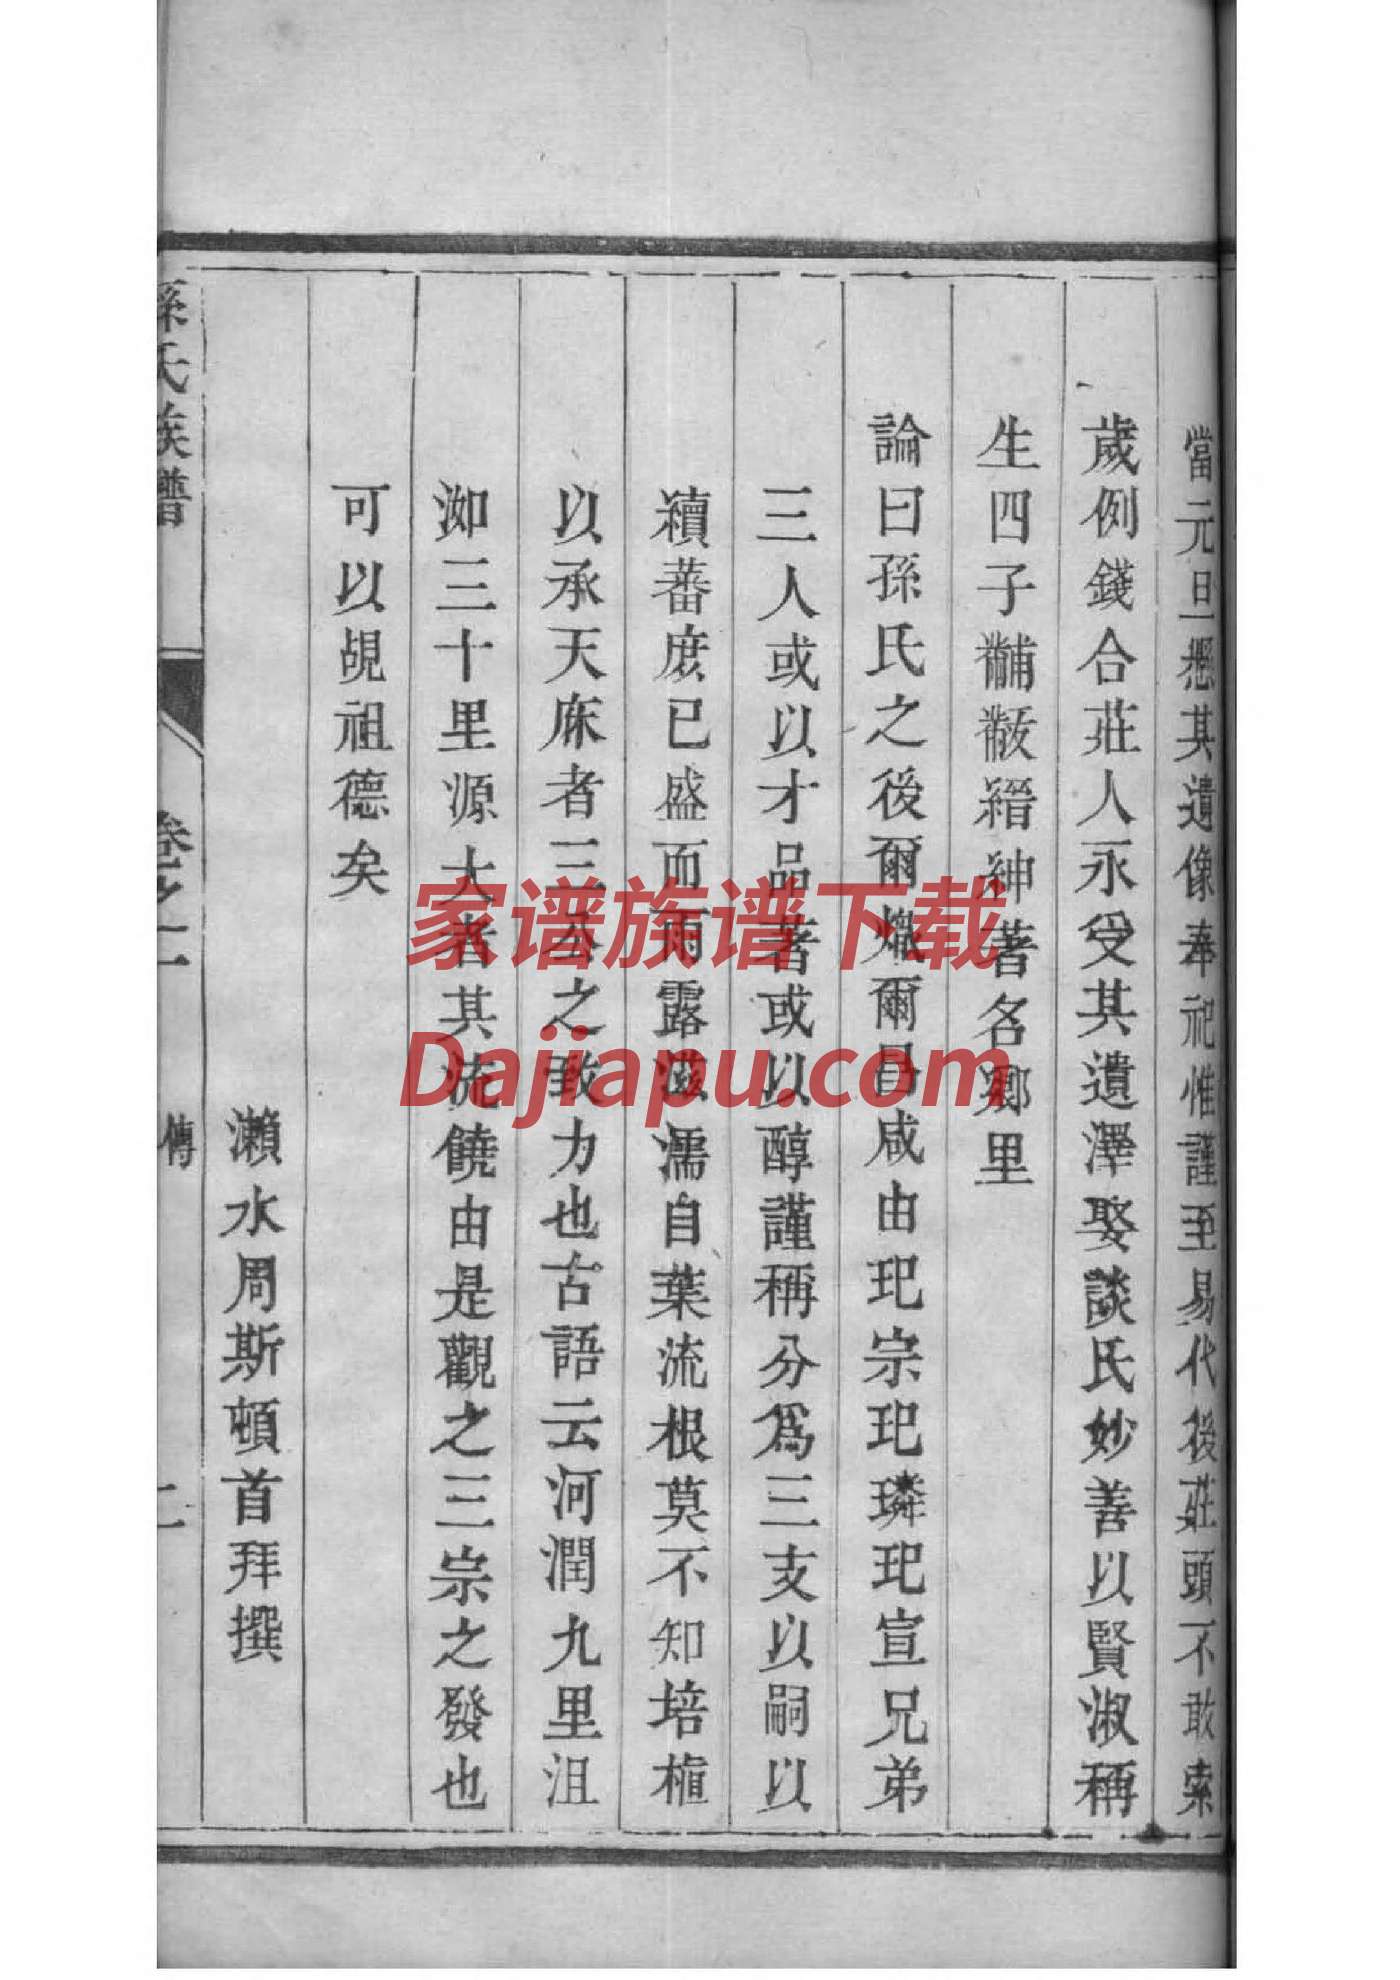 當元旦懸其遺像奉祀惟謹至易代後莊頭不敢索
歲例錢合莊人永受其遺澤娶談氏妙善以賢淑稱
生四子黼黻縉紳著名鄉里
論曰孫氏之後爾熾爾昌咸由玘宗玘璘玘宣兄弟
三人或以才品著或以醇謹稱分爲三支以嗣以
續蕃庶已盛而雨露滋濡自葉流根莫不知培植
以承天庥者三公之戩力也古語云河潤九里沮
洳三十里源大者其流饒由是觀之三宗之發也
可以覘祖德矣
瀨水周斯頓首拜撰
孫氏族譜
卷之一
傳
二
家谱族谱下载
Dajiapu.com